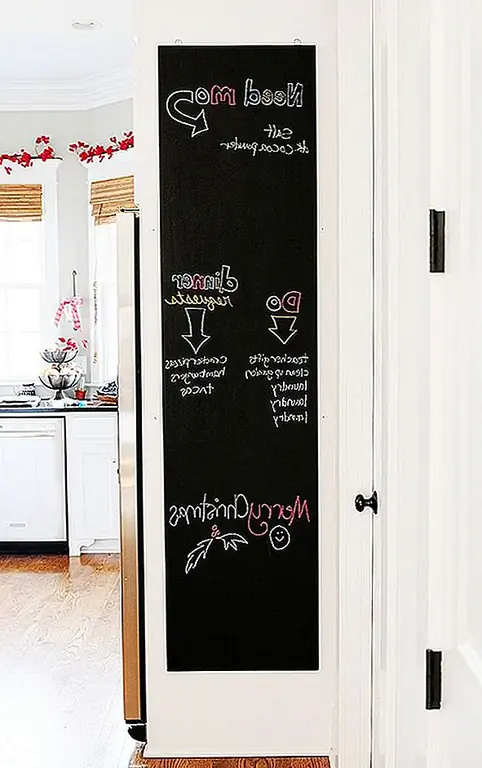 Need mo
Salt
dk cocoa powder
dinner
requests
hamburgers
tacos
Do
teacher gifts
clean up
laundry
laundry
laundry
Merry Christmas